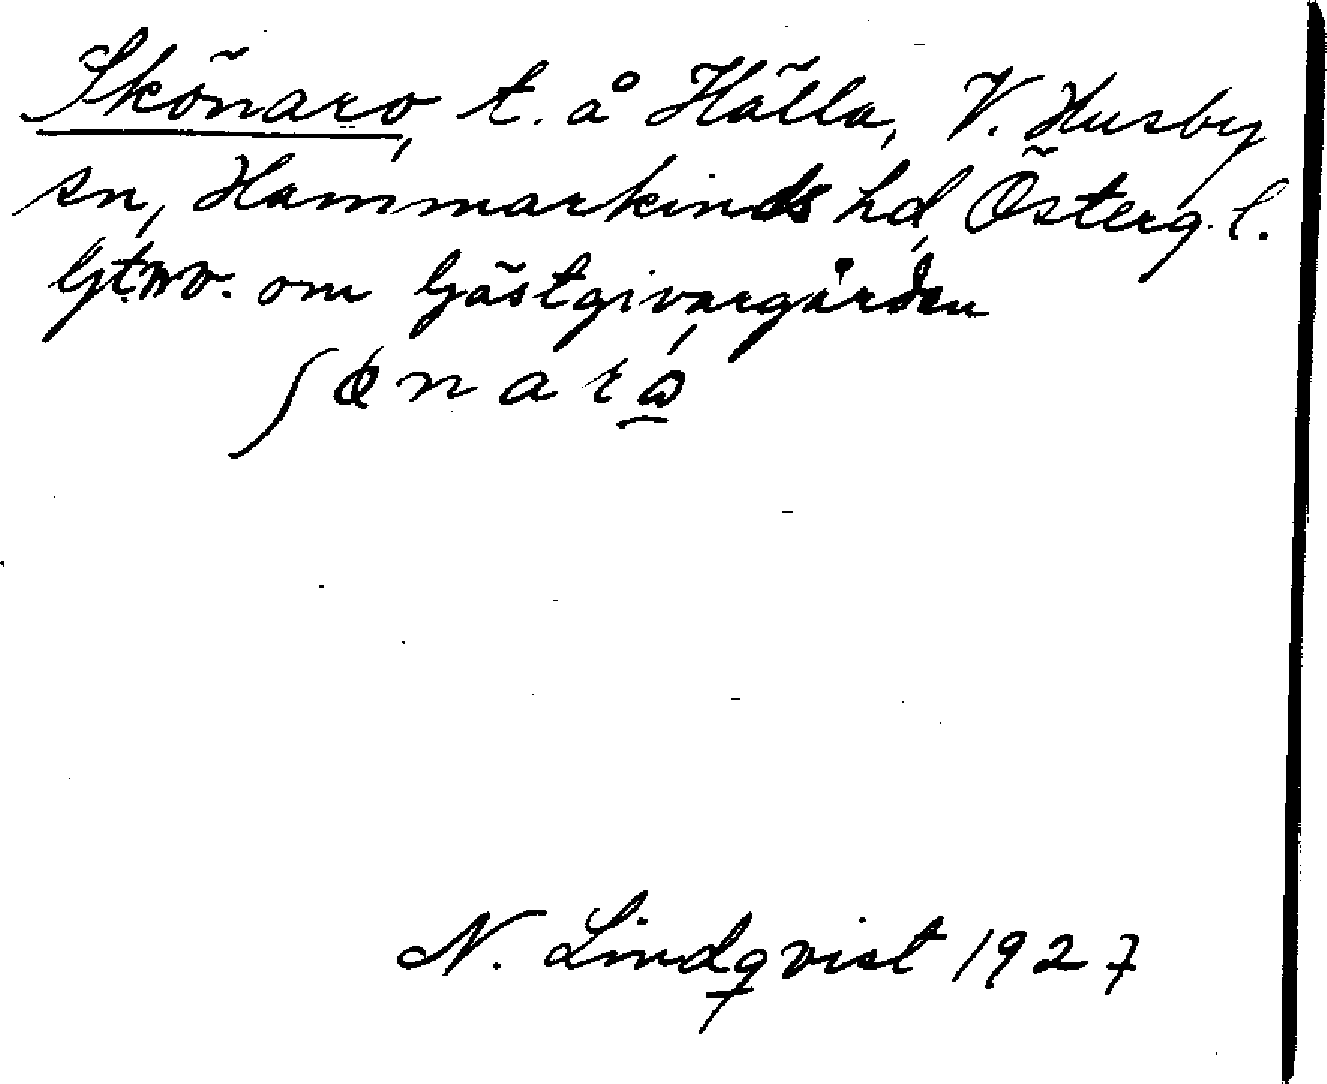 Skönaro, t. å Hälla, V. Husby
sn, Hammarkinds hd, Österg. l.
om Gästgivargården
N. Lindqvist 1927